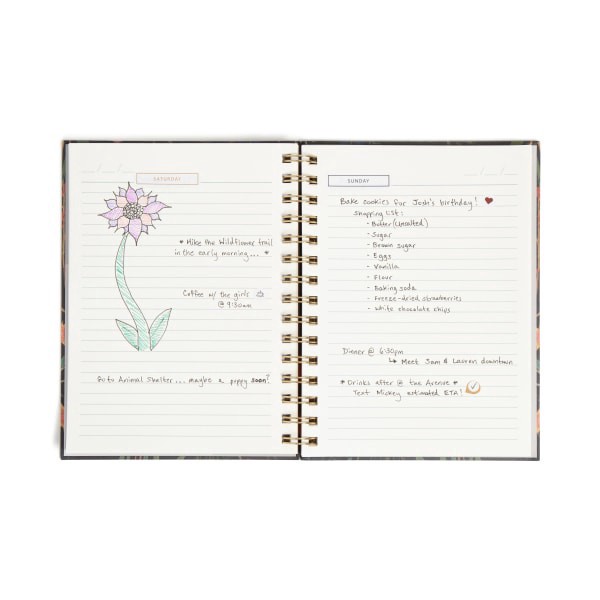 SATURDAY
* Hike the Wildflower trail
in the early morning... *
Coffee w/ the girls
@ 9:30am
Go to Animal Shelter... maybe a puppy soon?
SUNDAY
Bake cookies for Josh's birthday!
Shopping List:
- Butter (Unsalted)
- Sugar
- Brown sugar
- Eggs
- Vanilla
- Flour
- Baking soda
- Freeze-dried strawberries
- White chocolate chips
Dinner @ 6:30pm
↳ Meet Sam & Lauren downtown
* Drinks after @ the Avenue *
Text Mickey estimated ETA!